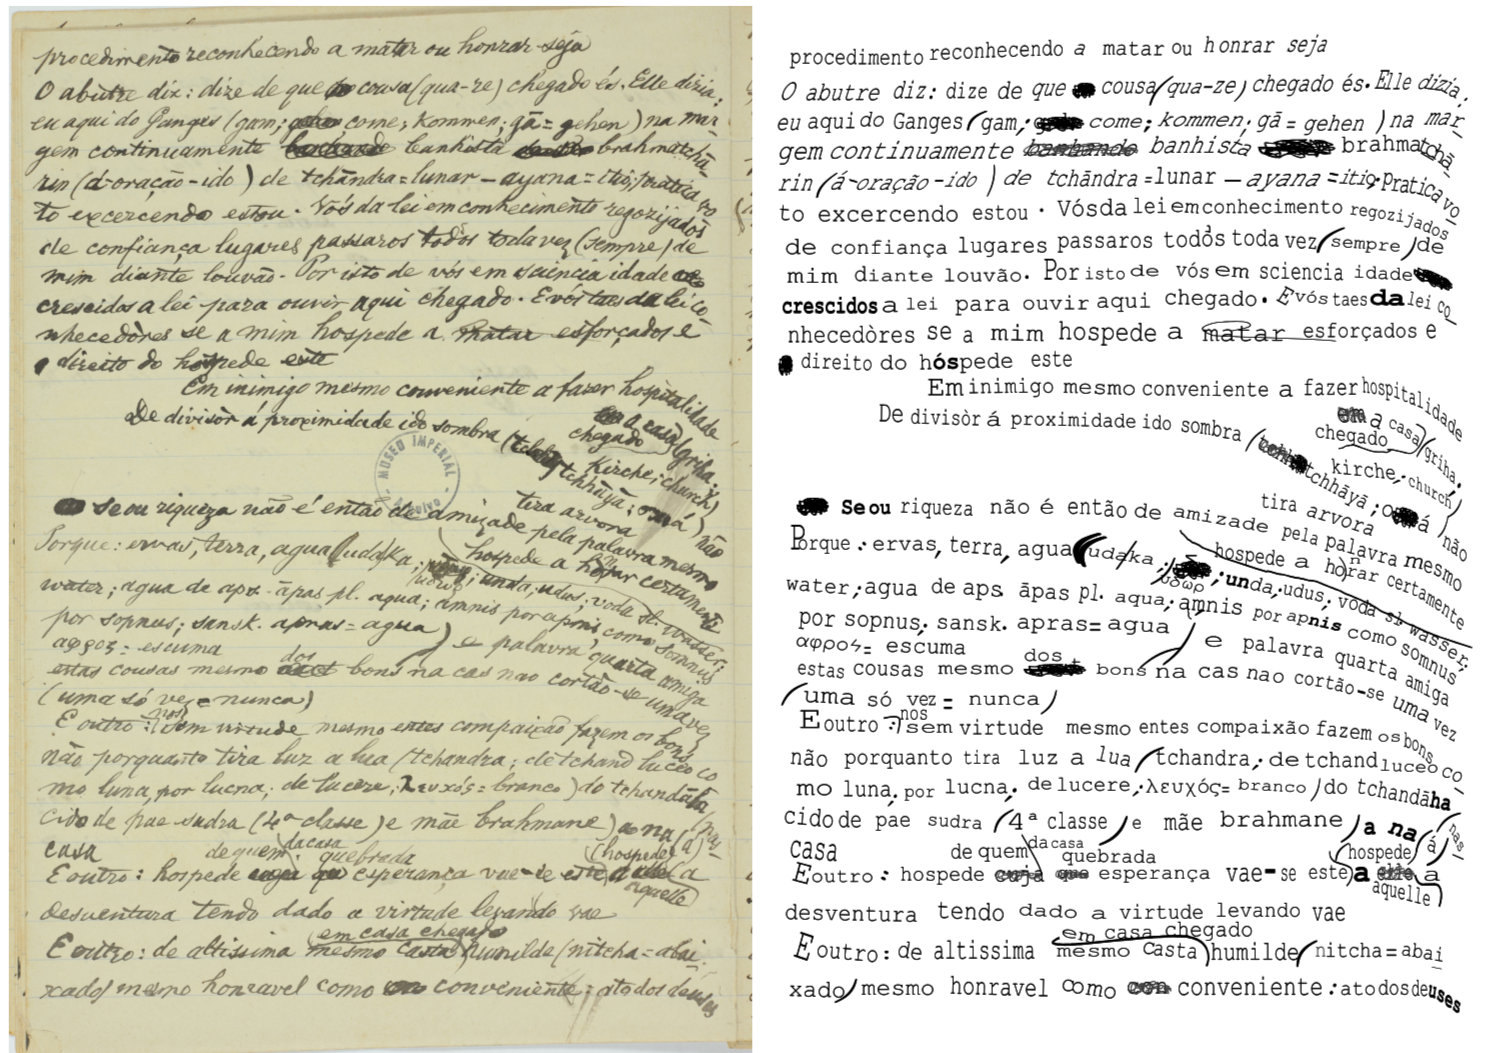 procedimento reconhecendo a matar ou honrar seja
O abutre diz: dize de que cousa (qua-re) chegado és. Elle dizia:
eu aqui do Ganges (gam; come; kommen; gā = gehen) na mar-
gem continuamente banhando banhista brahmatchā-
rin (á-oração-ido) de tchāndra = lunar — ayana = itio; pratica vo-
to excercendo estou. Vós da lei em conhecimento regozijados
de confiança lugares passaros todos toda vez (sempre) de
mim diante louvão. Por isto de vós em sciencia idade
crescidos a lei para ouvir aqui chegado. E vós taes da lei co-
nhecedòres se a mim hospede a matar esforçados e
direito do hospede este
Em inimigo mesmo conveniente a fazer hospitalidade
De divisòr á proximidade ido sombra (tchhāyā; não
em a casa (griha.
chegado
Kirche; church)
tira arvora
se ou riqueza não é então de amizade pela palavra mesmo
hospede a honrar certamente
Porque: ervas, terra, agua (udaka; ὕδωρ; unda; udus; voda sl. wasser;
water; agua de aps. āpas pl. aqua; amnis por apnis como somnus
por sopnus; sansk. apras = agua) e palavra quarta amiga
αφρος = escuma
dos
estas cousas mesmo bons na cas nao cortão-se uma vez
(uma só vez = nunca)
nos
E outro: sem virtude mesmo entes compaixão fazem os bons
não porquanto tira luz a lua (tchandra; de tchand luceo co-
mo luna, por lucna; de lucere; λευχός = branco) do tchandāla
cido de pae sudra (4ª classe) e mãe brahmane) a na (á nas-
casa de quem da casa quebrada (hospede)
E outro: hospede cuja que esperança vae-se este a elle (a
aquelle)
desventura tendo dado a virtude levando vae
em casa chegado
E outro: de altissima mesmo casta) humilde (nitcha = abai-
xado) mesmo honravel como conveniente: a todos deuses
MUSEO IMPERIAL
Arquivo
procedimento reconhecendo a matar ou honrar seja
O abutre diz: dize de que cousa (qua-ze) chegado és. Elle dizia:
eu aqui do Ganges (gam; come; kommen; gā = gehen ) na mar
gem continuamente banhando banhista brahmatchā
rin (á-oração-ido ) de tchāndra = lunar — ayana = itio; Pratica vo
to excercendo estou . Vós da lei em conhecimento regozijados
de confiança lugares passaros todos toda vez (sempre )de
mim diante louvão. Por isto de vós em sciencia idade
crescidos a lei para ouvir aqui chegado. E vós taes da lei co
nhecedòres se a mim hospede a matar esforçados e
direito do hóspede este
Em inimigo mesmo conveniente a fazer hospitalidade
De divisòr á proximidade ido sombra (tchhāyā; não
em a casa (griha.
chegado
kirche, church)
tira arvora
Se ou riqueza não é então de amizade pela palavra mesmo
hospede a honrar certamente
Porque : ervas, terra, agua (udaka ; υδωρ ; unda, udus; voda sl wasser;
water ; agua de aps āpas pl. aqua; amnis por apnis como somnus
por sopnus; sansk. apras= agua ) e palavra quarta amiga
αφρος= escuma
dos
estas cousas mesmo bons na cas nao cortão-se uma vez
(uma só vez = nunca)
nos
E outro : sem virtude mesmo entes compaixão fazem os bons
não porquanto tira luz a lua (tchandra; de tchand luceo co
mo luna, por lucna; de lucere; λευχός= branco )do tchandāha
cido de pae sudra (4ª classe) e mãe brahmane ) a na (á nas-
casa de quem da casa quebrada (hospede
E outro : hospede cuja que esperança vae-se este) a elle a
aquelle)
desventura tendo dado a virtude levando vae
em casa chegado
E outro: de altissima mesmo Casta )humilde (nitcha = abai
xado) mesmo honravel como con conveniente : a todos deuses